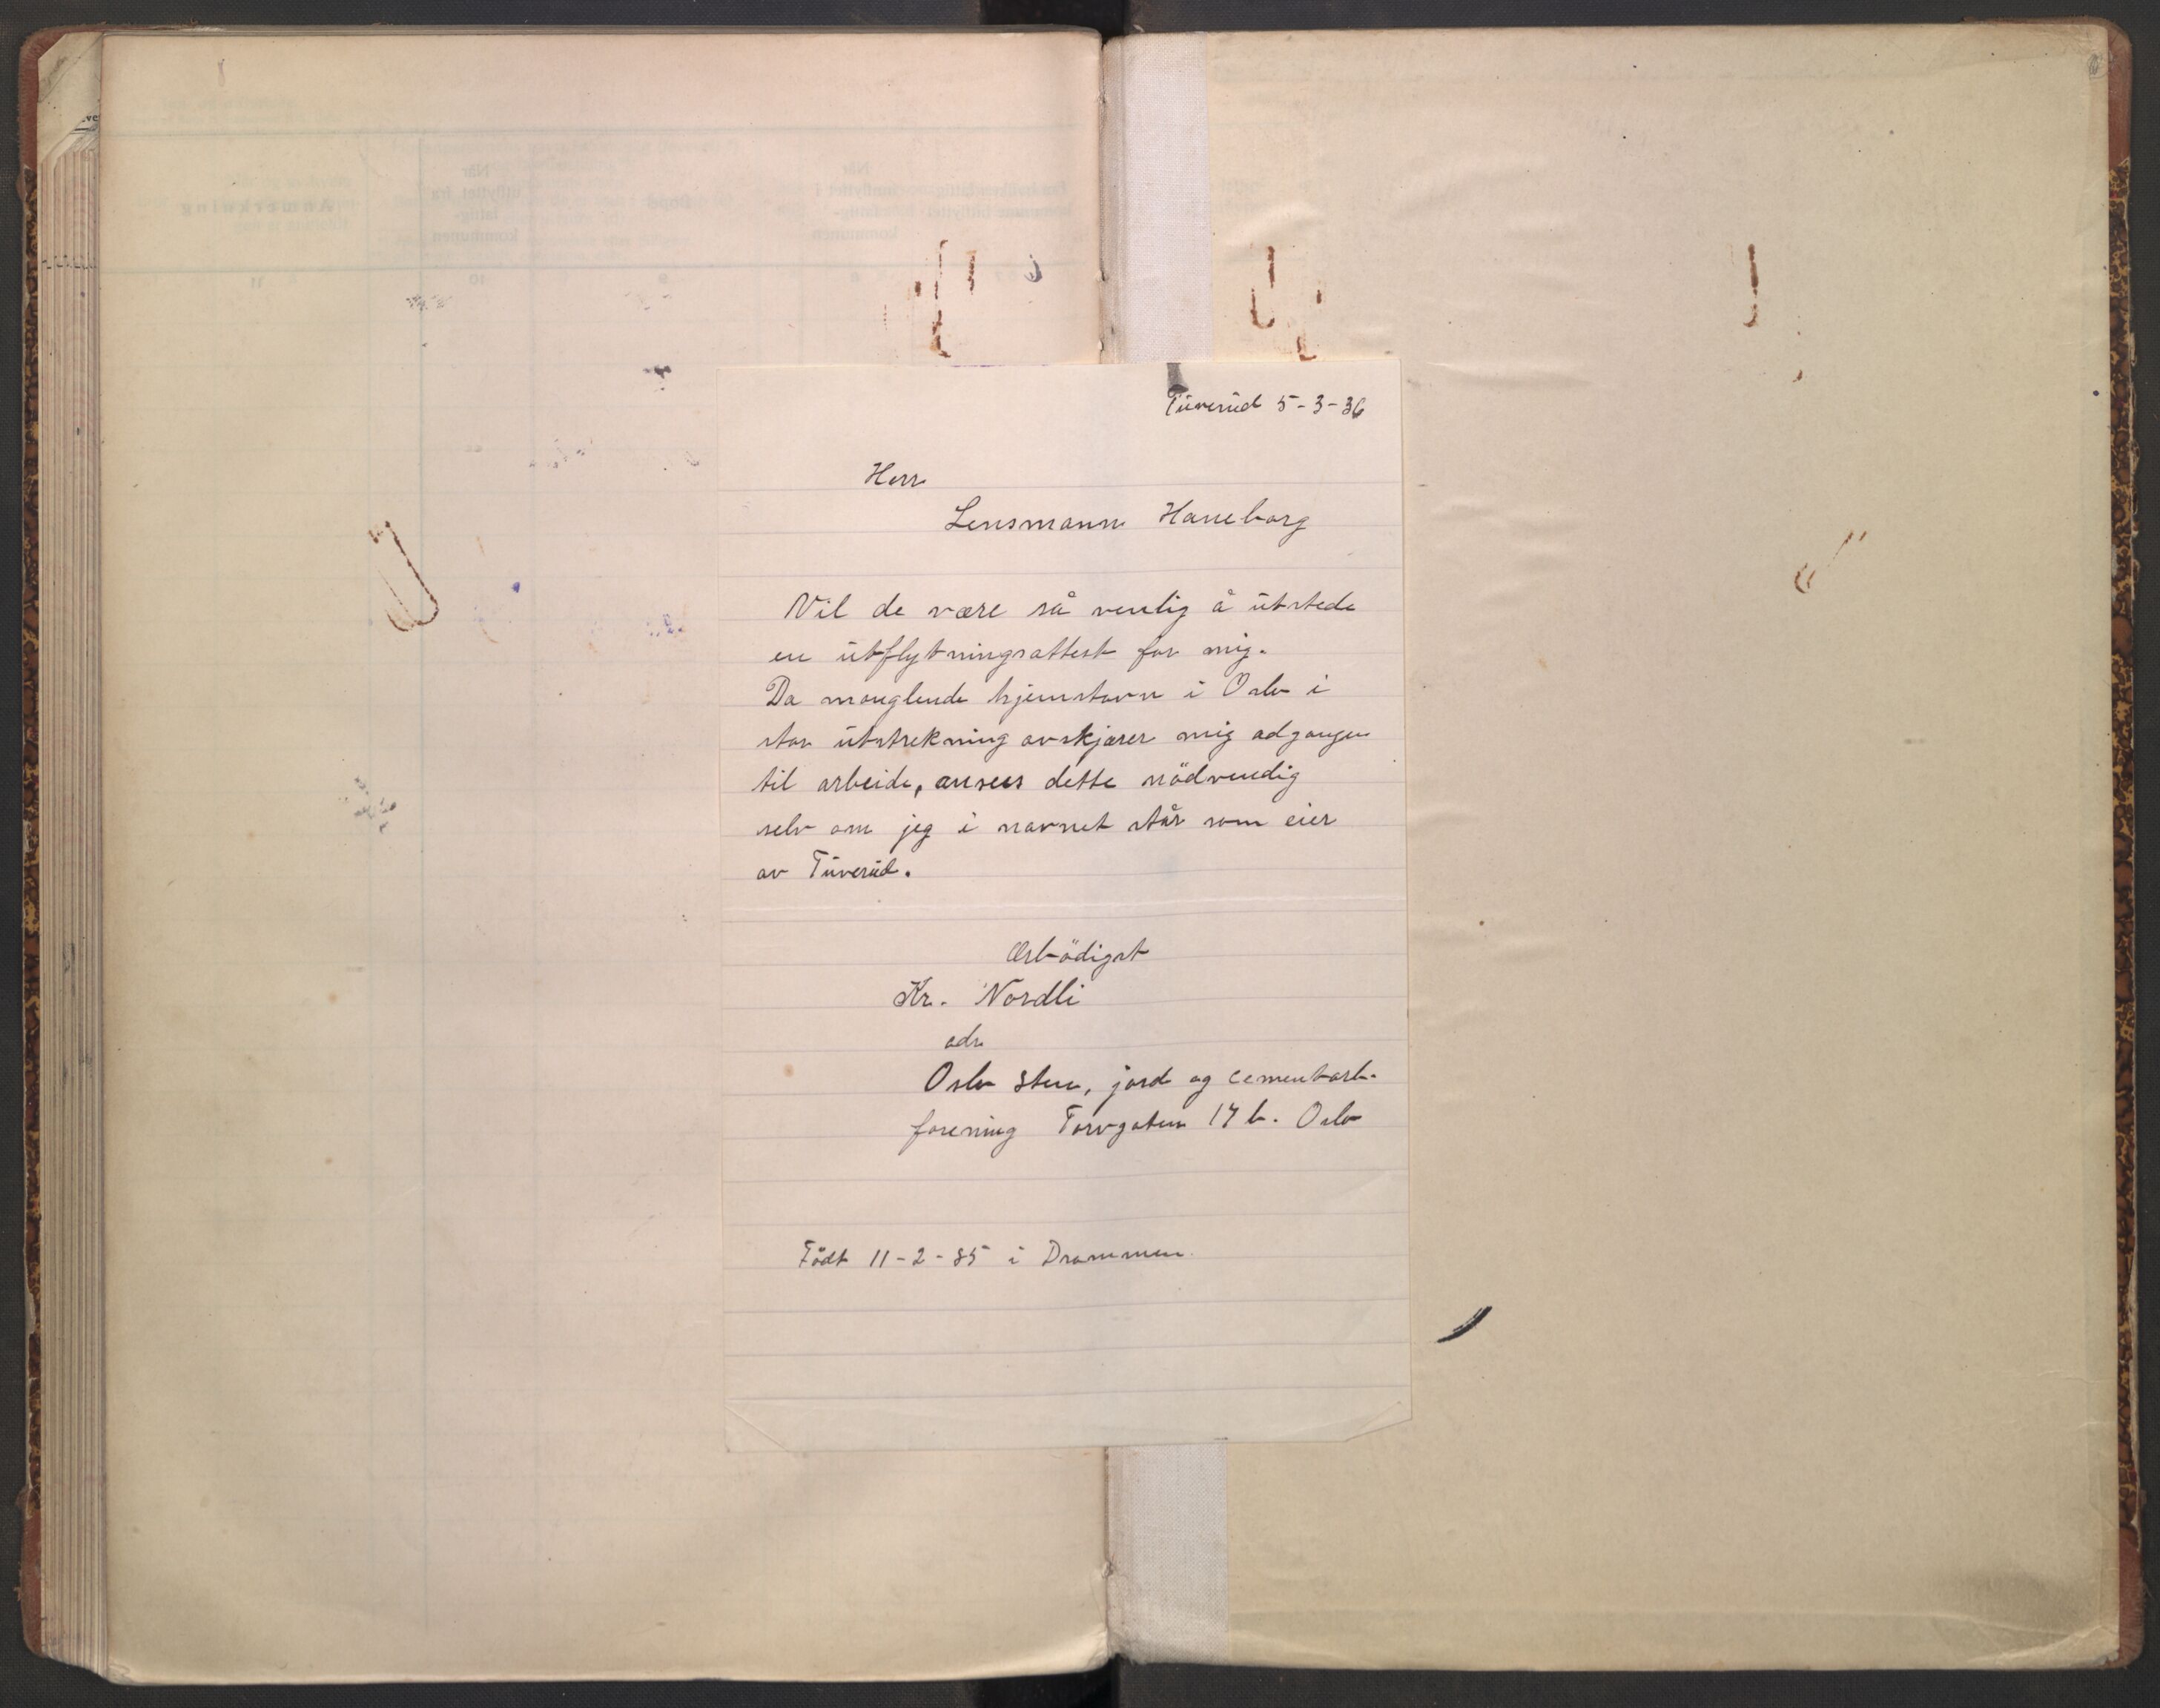 Tuverud 5-3-36
Herr
Lensmann Haneborg
Vil de være så venlig å utstede
en utflytningsattest for mig.
Da manglende hjemstavn i Oslo i
stor utstrekning avskjærer mig adgangen
til arbeide, ansees dette nödvendig
selv om jeg i navnet står som eier
av Tuverud.
Ærbödigst
Kr. Nordli
adr
Oslo sten, jord og cementarb.
forening Torvgaten 17 b. Oslo
Födt 11-2-85 i Drammen.
Anmerkning
Når
utflyttet fra
fattig-
kommunen
Død
Når
innflyttet i
fattig-
kommunen
11
10
9
8